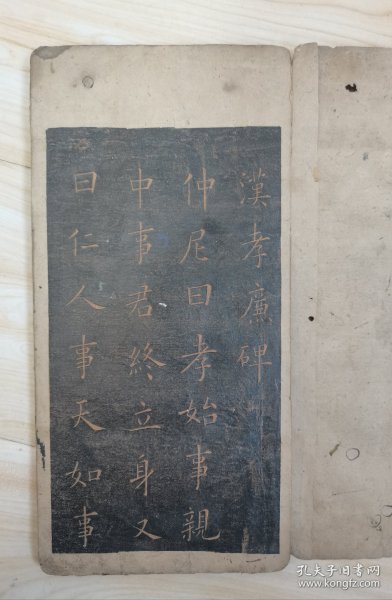 漢孝廉碑
仲尼曰孝始事親
中事君終立身又
曰仁人事天如事
孔夫子旧书网
www.kongfz.com